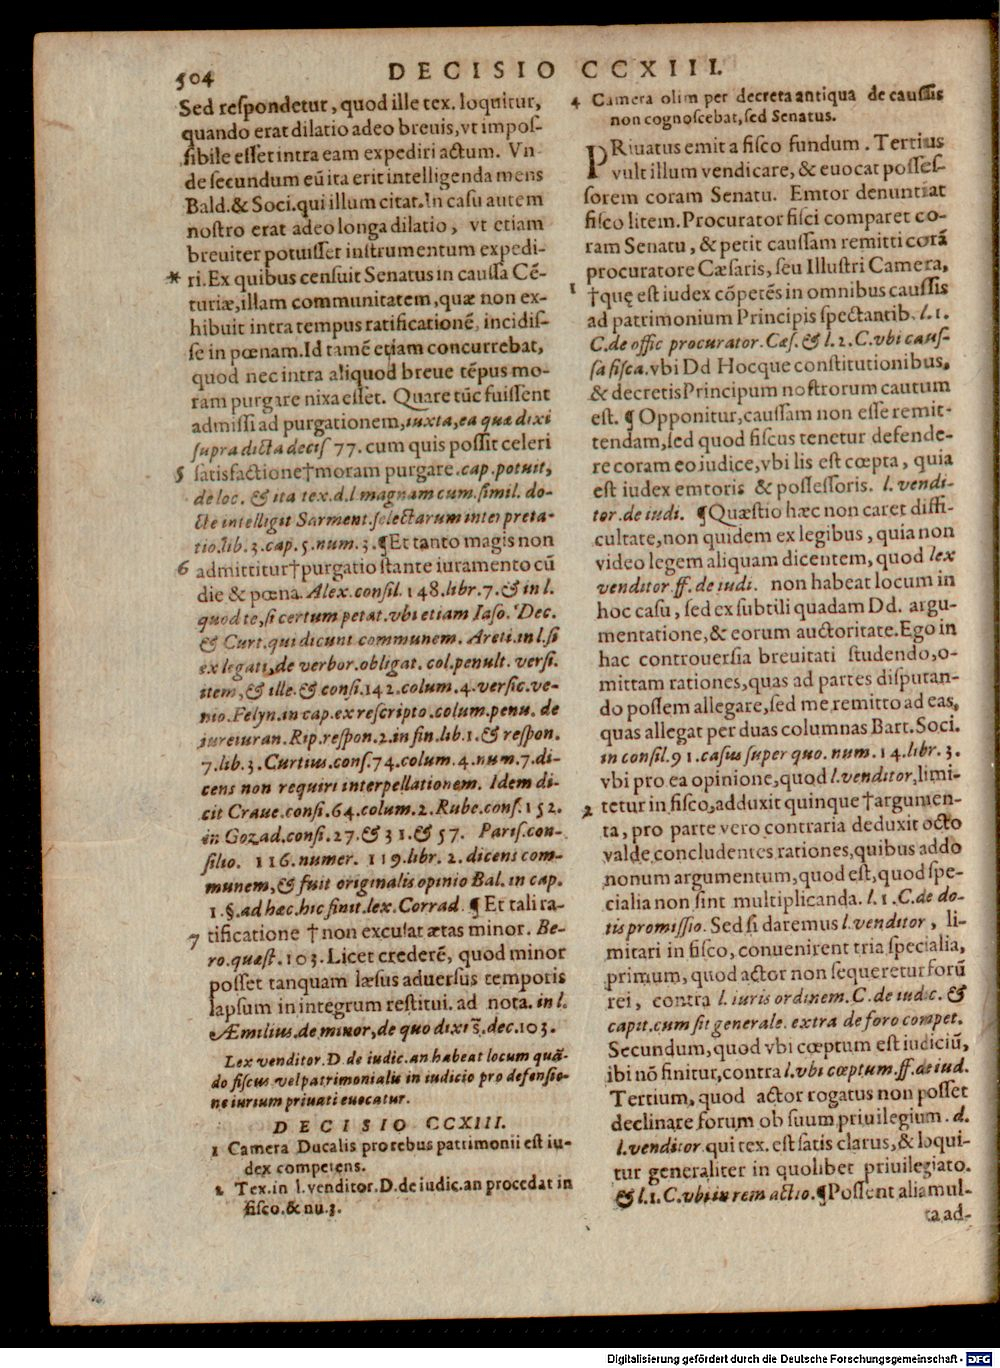 504
DECISIO CCXIII.
Sed respondetur, quod ille tex. loquitur,
quando erat dilatio adeo breuis, vt impos-
sibile esset intra eam expediri actum. Vn
de secundum eū ita erit intelligenda mens
Bald. & Soci. qui illum citat. In casu autem
nostro erat adeo longa dilatio, vt etiam
breuiter potuisset instrumentum expedi-
* ri. Ex quibus censuit Senatus in caussa Cē-
turiæ, illam communitatem, quæ non ex-
hibuit intra tempus ratificationē, incidis-
se in pœnam. Id tamē etiam concurrebat,
quod nec intra aliquod breue tēpus mo-
ram purgare nixa esset. Quare tūc fuissent
admissi ad purgationem, iuxta, ea quæ dixi
supra dicta decis 77. cum quis possit celeri
5 satisfactione†moram purgare. cap. potuit,
de loc. & ita tex. d. l magnam cum. simil. do-
cte intelligit Sarment. selectarum interpreta-
tio. lib. 3. cap. 5. num. 3. ¶Et tanto magis non
6 admittitur†purgatio stante iuramento cū
die & pœna. Alex. consil. 148. libr. 7. & in l.
quod te, si certum petat. vbi etiam Iaso. Dec.
& Curt. qui dicunt communem. Areti. in l. si
ex legati, de verbor. obligat. col. penult. versi.
item, & ille. & consi. 142. colum. 4. versic. ve-
nio. Felyn. in cap. ex rescripto. colum. penu. de
iureiuran. Rip. respon. 2. in fin. lib. 1. & respon.
7. lib. 3. Curtius. cons. 74. colum. 4. num. 7. di-
cens non requiri interpellationem. Idem di-
cit Craue. consi. 64. colum. 2. Rube. cons. 152.
in Gozad. consi. 27. & 31. & 57. Paris. con-
silio. 116. numer. 119. libr. 2. dicens com-
munem, & fuit originalis opinio Bal. in cap.
1. §. ad hæc. hic finit. lex. Corrad. ¶ Et tali ra-
7 tificatione † non excusat ætas minor. Be-
ro. quæst. 103. Licet crederē, quod minor
posset tanquam læsus aduersus temporis
lapsum in integrum restitui. ad nota. in l.
Æmilius. de minor, de quo dixi s̄. dec. 103.
Lex venditor. D. de iudic. an habeat locum quā-
do fiscus vel patrimonialis in iudicio pro defensio-
ne iurium priuati euocatur.
DECISIO CCXIII.
1 Camera Ducalis pro rebus patrimonii est iu-
dex competens.
2 Tex. in l. venditor. D. de iudic. an procedat in
fisco. & nu. 3.
4 Camera olim per decreta antiqua de caussis
non cognoscebat, sed Senatus.
PRiuatus emit a fisco fundum. Tertius
vult illum vendicare, & euocat posses-
sorem coram Senatu. Emtor denuntiat
fisco litem. Procurator fisci comparet co-
ram Senatu, & petit caussam remitti corā
procuratore Cæsaris, seu Illustri Camera,
1 †quę est iudex cōpetēs in omnibus caussis
ad patrimonium Principis spectantib. l. 1.
C. de offic procurator. Cæs. & l. 2. C. vbi caus-
sa fisca. vbi Dd Hocque constitutionibus,
& decretis Principum nostrorum cautum
est. ¶ Opponitur, caussam non esse remit-
tendam, sed quod fiscus tenetur defende-
re coram eo iudice, vbi lis est cœpta, quia
est iudex emtoris & possessoris. l. vendi-
tor. de iudi. ¶Quæstio hæc non caret diffi-
cultate, non quidem ex legibus, quia non
video legem aliquam dicentem, quod lex
venditor ff. de iudi. non habeat locum in
hoc casu, sed ex subtili quadam Dd. argu-
mentatione, & eorum auctoritate. Ego in
hac controuersia breuitati studendo, o-
mittam rationes, quas ad partes disputan-
do possem allegare, sed me remitto ad eas,
quas allegat per duas columnas Bart. Soci.
in consil. 91. casus super quo. num. 14. libr. 3.
vbi pro ea opinione, quod l. venditor, limi-
2 tetur in fisco, adduxit quinque †argumen-
ta, pro parte vero contraria deduxit octo
valde concludentes rationes, quibus addo
nonum argumentum, quod est, quod spe-
cialia non sint multiplicanda. l. 1. C. de do-
tis promissio. Sed si daremus l. venditor, li-
mitari in fisco, conuenirent tria specialia,
primum, quod actor non sequeretur forū
rei, contra l. iuris ordinem. C. de iudic. &
capit. cum sit generale. extra de foro compet.
Secundum, quod vbi cœptum est iudiciū,
ibi nō finitur, contra l. vbi cœptum. ff. de iud.
Tertium, quod actor rogatus non posset
declinare forum ob suum priuilegium. d.
l. venditor. qui tex. est satis clarus, & loqui-
tur generaliter in quolibet priuilegiato.
& l. 1. C. vbi in rem actio. ¶Possent alia mul-
ta ad-
Digitalisierung gefördert durch die Deutsche Forschungsgemeinschaft - DFG